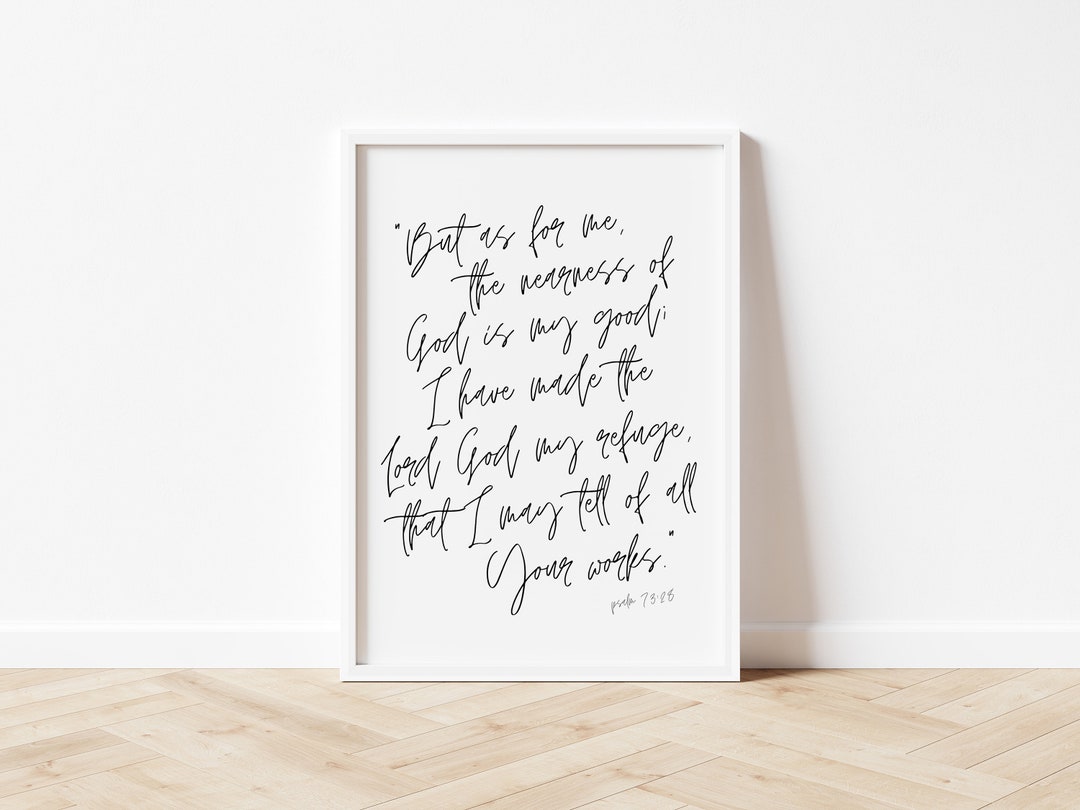 "But as for me,
the nearness of
God is my good;
I have made the
Lord God my refuge,
that I may tell of all
Your works."
psalm 73:28